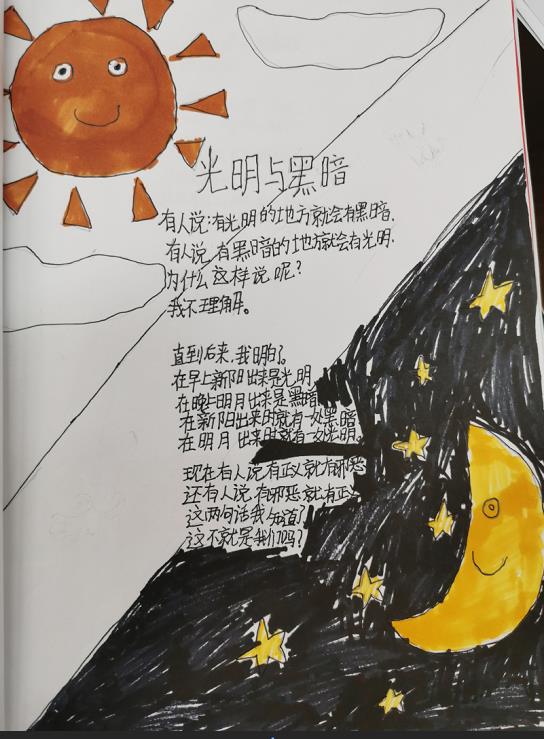 光明与黑暗
有人说:有光明的地方就会有黑暗,
有人说 有黑暗的地方就会有光明.
为什么这样说呢?
我不理解。
直到后来,我明白了。
在早上新阳出来是光明,
在晚上明月出来是黑暗
在新阳出来时就有一处黑暗
在明月出来时就有一处光明。
现在有人说有正义就有邪恶
还有人说有邪恶就有正义
这两句话我知道了
这不就是我们吗?